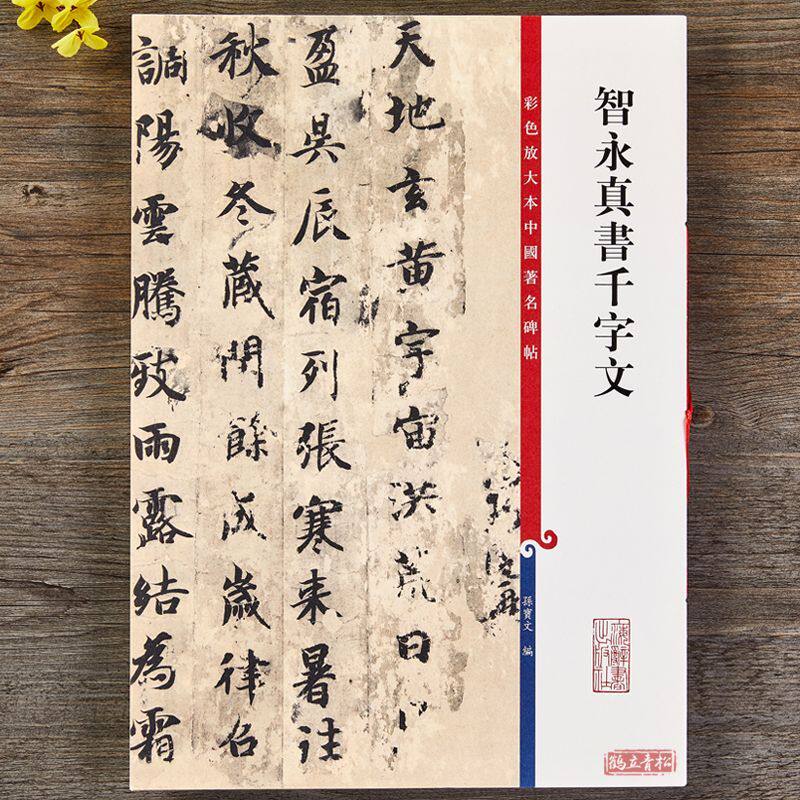 智永真書千字文
上海辭書出版社
鹤立青松
彩色放大本中國著名碑帖
孫寶文 編
天地玄黄宇宙洪荒日
盈昃辰宿列張寒来暑往
秋收冬藏閏餘成歲律召
調陽雲騰致雨露結為霜